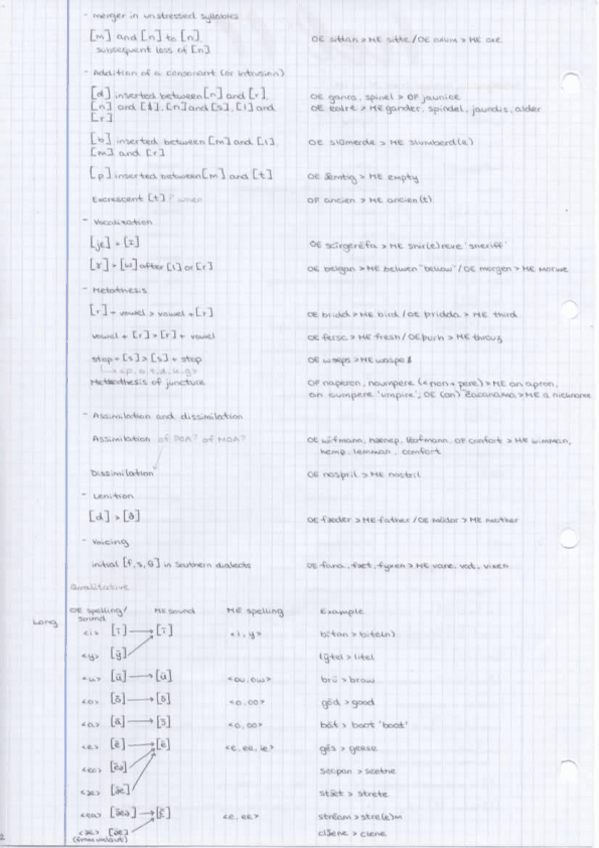 - merger in unstressed syllables
[m] and [n] to [n] OE sittan > ME sitte / OE > ME
subsequent loss of [n]
- Addition of a consonant (or intrusion)
[d] inserted between [n] and [r], OE ganra, spinel > OF jaunice
[n] and [l], [n] and [s], [l] and OE > ME gander, spindel, jaundis, alder
[r]
[b] inserted between [m] and [l], OE slumerde > ME slumberd(e)
[m] and [r]
[p] inserted between [m] and [t] OE > ME empty
Excrescent [t] ? when OF ancien > ME ancien(t)
- Vocalization
OE scirgerēfa > ME 'sheriff'
[ɣ] > [w] after [l] or [r] OE belgan > ME belwen "bellow" / OE morgen > ME morwe
- Metathesis
[r] + vowel > vowel + [r] OE bridd > ME bird / OE þridda > ME third
vowel + [r] > [r] + vowel OE fersc > ME fresh / OE þurh > ME
stop + [s] > [s] + stop OE wæps > ME
Metathesis of juncture OF naperon, noumpere (< non + pere) > ME an apron,
an oumpere 'umpire', OE (an) > ME a nickname
- Assimilation and dissimilation
Assimilation of POA? of MOA? OE wifmann, hænep, lēofmann, OF confort > ME wimman,
hemp, lemman, comfort
Dissimilation OE > ME nostril
- Lenition
[d] > [ð] OE fæder > ME father / OE mōdor > ME mother
- Voicing
initial [f, s, θ] in Southern dialects OE fana, fæt, fyxen > ME vane, vat, vixen
Qualitative
OE spelling/ ME sound ME spelling Example
sound
Long <i> [ī] → [ī] <i, y> bītan > bite(n)
<y> [ȳ] lȳtel > litel
<u> [ū] → [ū] <ou, ow> brū > brow
<o> [ō] → [ō] <o, oo> gōd > good
<a> [ā] → [ɔ̄] <o, oo> bāt > boot 'boat'
<e> [ē] → [ē] <e, ee, ie> gēs > geese
<eo>
<æ> [ǣ] strǣt > strete
<ea> <e, ee> strēam > stre(e)m
<æ> [ǣ] clǣne > clene
2